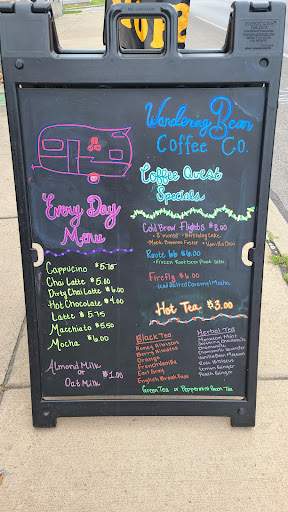 Wandering Bean
Coffee Co.
Coffee Quest
Specials
Every Day
Menu
Cappucino $5.75
Chai Latte $5.00
Dirty Chai Latte $6.00
Hot Chocolate $4.00
Latte $5.75
Macchiato $5.50
Mocha $6.00
Almond Milk
or
Oat Milk $1.00
Cold Brew Flights $8.00
• S'mores • Birthday Cake
• Vanilla Chai
Route 66 $6.00
• Frozen Root beer
Firefly $6.00
Iced Salted Caramel Mocha
Hot Tea $3.00
Black Tea
Honey Hibiscus
Berry Hibiscus
Orange
French Vanilla
Earl Grey
English Breakfast
Herbal Tea
Moroccan Mint
Chamomile
Chamomile Lavender
Vanilla Bean
Rooibos
Lemon Ginger
Peach Ginger
Green Tea or Peppermint Green Tea